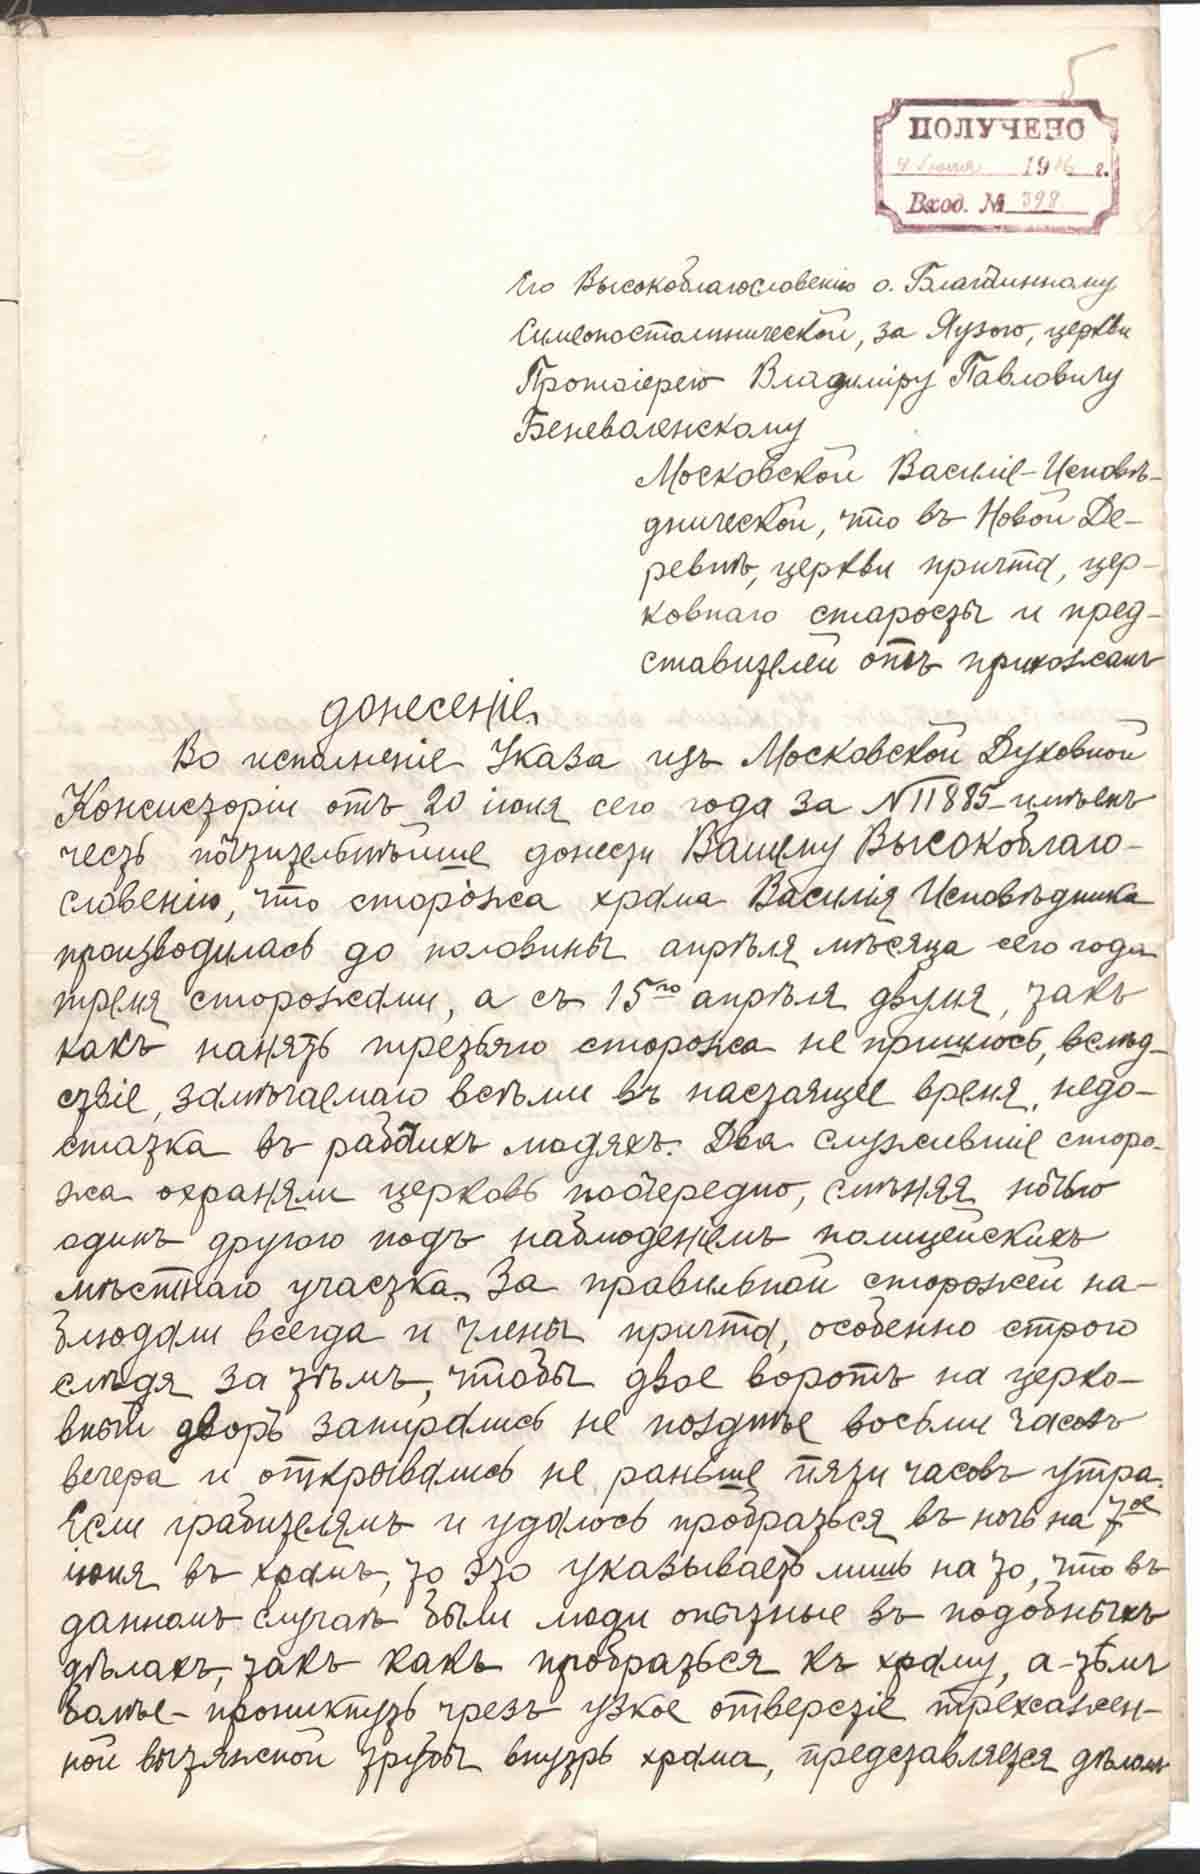 5
ПОЛУЧЕНО
4 Іюля 1916 г.
Вход. № 398
Его Высокоблагословенію о. Благочинному
Симеоностолпнической, за Яузою, церкви
Протоіерею Владиміру Павловичу
Беневоленскому
Московской Василіе-Исповѣ-
днической, что въ Новой Де-
ревнѣ, церкви причта, цер-
ковнаго старосты и пред-
ставителей отъ прихожанъ
донесеніе.
Во исполненіе Указа изъ Московской Духовной
Консисторіи отъ 20 іюня сего года за № 11885 имѣемъ
честь почтительнѣйше донести Вашему Высокоблаго-
словенію, что сторожа храма Василія Исповѣдника
производилась до половины апрѣля мѣсяца сего года
тремя сторожами, а съ 15го апрѣля двумя, такъ
какъ нанять третьяго сторожа не пришлось, вслѣд-
ствіе, замѣчаемаго всѣми въ настоящее время, недо-
статка въ рабочихъ людяхъ. Два служившіе сторо-
жа охраняли церковь поочередно, смѣняя ночью
одинъ другого подъ наблюденіемъ полицейскихъ
мѣстнаго участка. За правильной сторожей на-
блюдали всегда и члены причта, особенно строго
слѣдя за тѣмъ, чтобы двое воротъ на церко-
вный дворъ запирались не позднѣе восьми часовъ
вечера и открывались не раньше пяти часовъ утра.
Если грабителямъ и удалось пробраться въ ночь на 7ое
іюня въ храмъ, то это указываетъ лишь на то, что въ
данномъ случаѣ были люди опытные въ подобныхъ
дѣлахъ, такъ какъ пробраться къ храму, а тѣмъ
болѣе - проникнуть чрезъ узкое отверстіе трехсажен-
ной вытяжной трубы внутрь храма, представляется дѣломъ